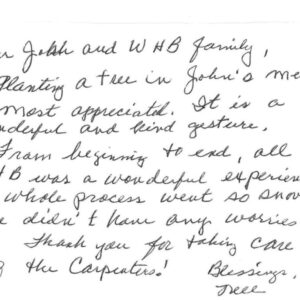 Johh and WHB family,
Planting a tree in John's me
most appreciated. It is a
nderful and kind gesture.
From beginning to end, all
HB was a wonderful experien
whole process went so smoo
e didn't have any worries
Thank you for taking care
g the Carpenters! Blessings,